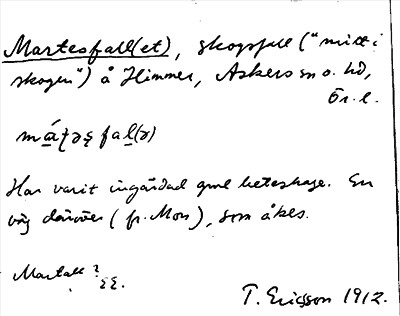 Martesfall(et), skogsfall ("mitt i
skogen") å Himmer, Askers sn o. hd,
Ör. l.
Har varit ingärdad gml beteshage. En
väg däröver (fr. Mon), som åkes.
Martall?
T. Ericsson 1912.